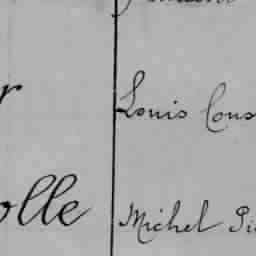 r Louis Cons
olle Michel Pi